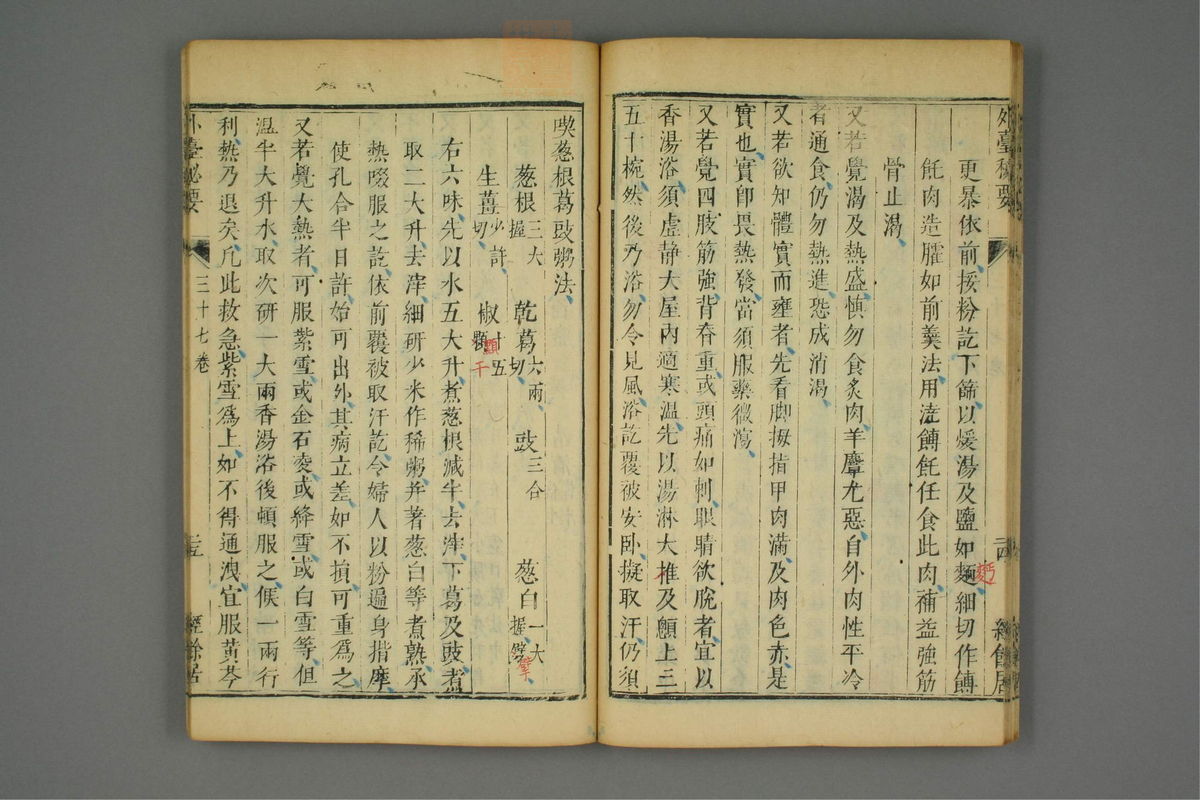 外臺秘要
更暴依前挼粉訖下篩以煖湯及鹽如麵細切作餺
飥肉造臛如前羹法用澆餺飥任食此肉補益強筋
骨止渴
又若覺渴及熱盛慎勿食炙肉羊麞尤惡自外肉性平冷
者通食仍勿熱進恐成消渴
又若欲知體實而壅者先看脚拇指甲肉滿及肉色赤是
實也實即畏熱發當須服藥微瀉
又若覺四肢筋強背脊重或頭痛如刺眼睛欲脫者宜以
香湯浴須虛靜大屋內適寒温先以湯淋大推及顖上三
五十椀然後乃浴勿令見風浴訖覆被安卧擬取汗仍須
喫葱根葛豉粥法
葱根三大握 乾葛六兩切 豉三合 葱白一大握劈
生薑少許切 椒十五顆
右六味先以水五大升煮葱根減半去滓下葛及豉煮
取二大升去滓細研少米作稀粥并著葱白等煮熟承
熱啜服之訖依前覆被取汗訖令婦人以粉遍身揩摩
使孔合半日許始可出外其病立差如不損可重爲之
又若覺大熱者可服紫雪或金石凌或絳雪或白雪等但
温半大升水取次研一大兩香湯浴後頓服之候一兩行
利熱乃退矣凡此救急紫雪爲上如不得通洩宜服黃芩
外臺秘要 三十七卷 二五 經餘居